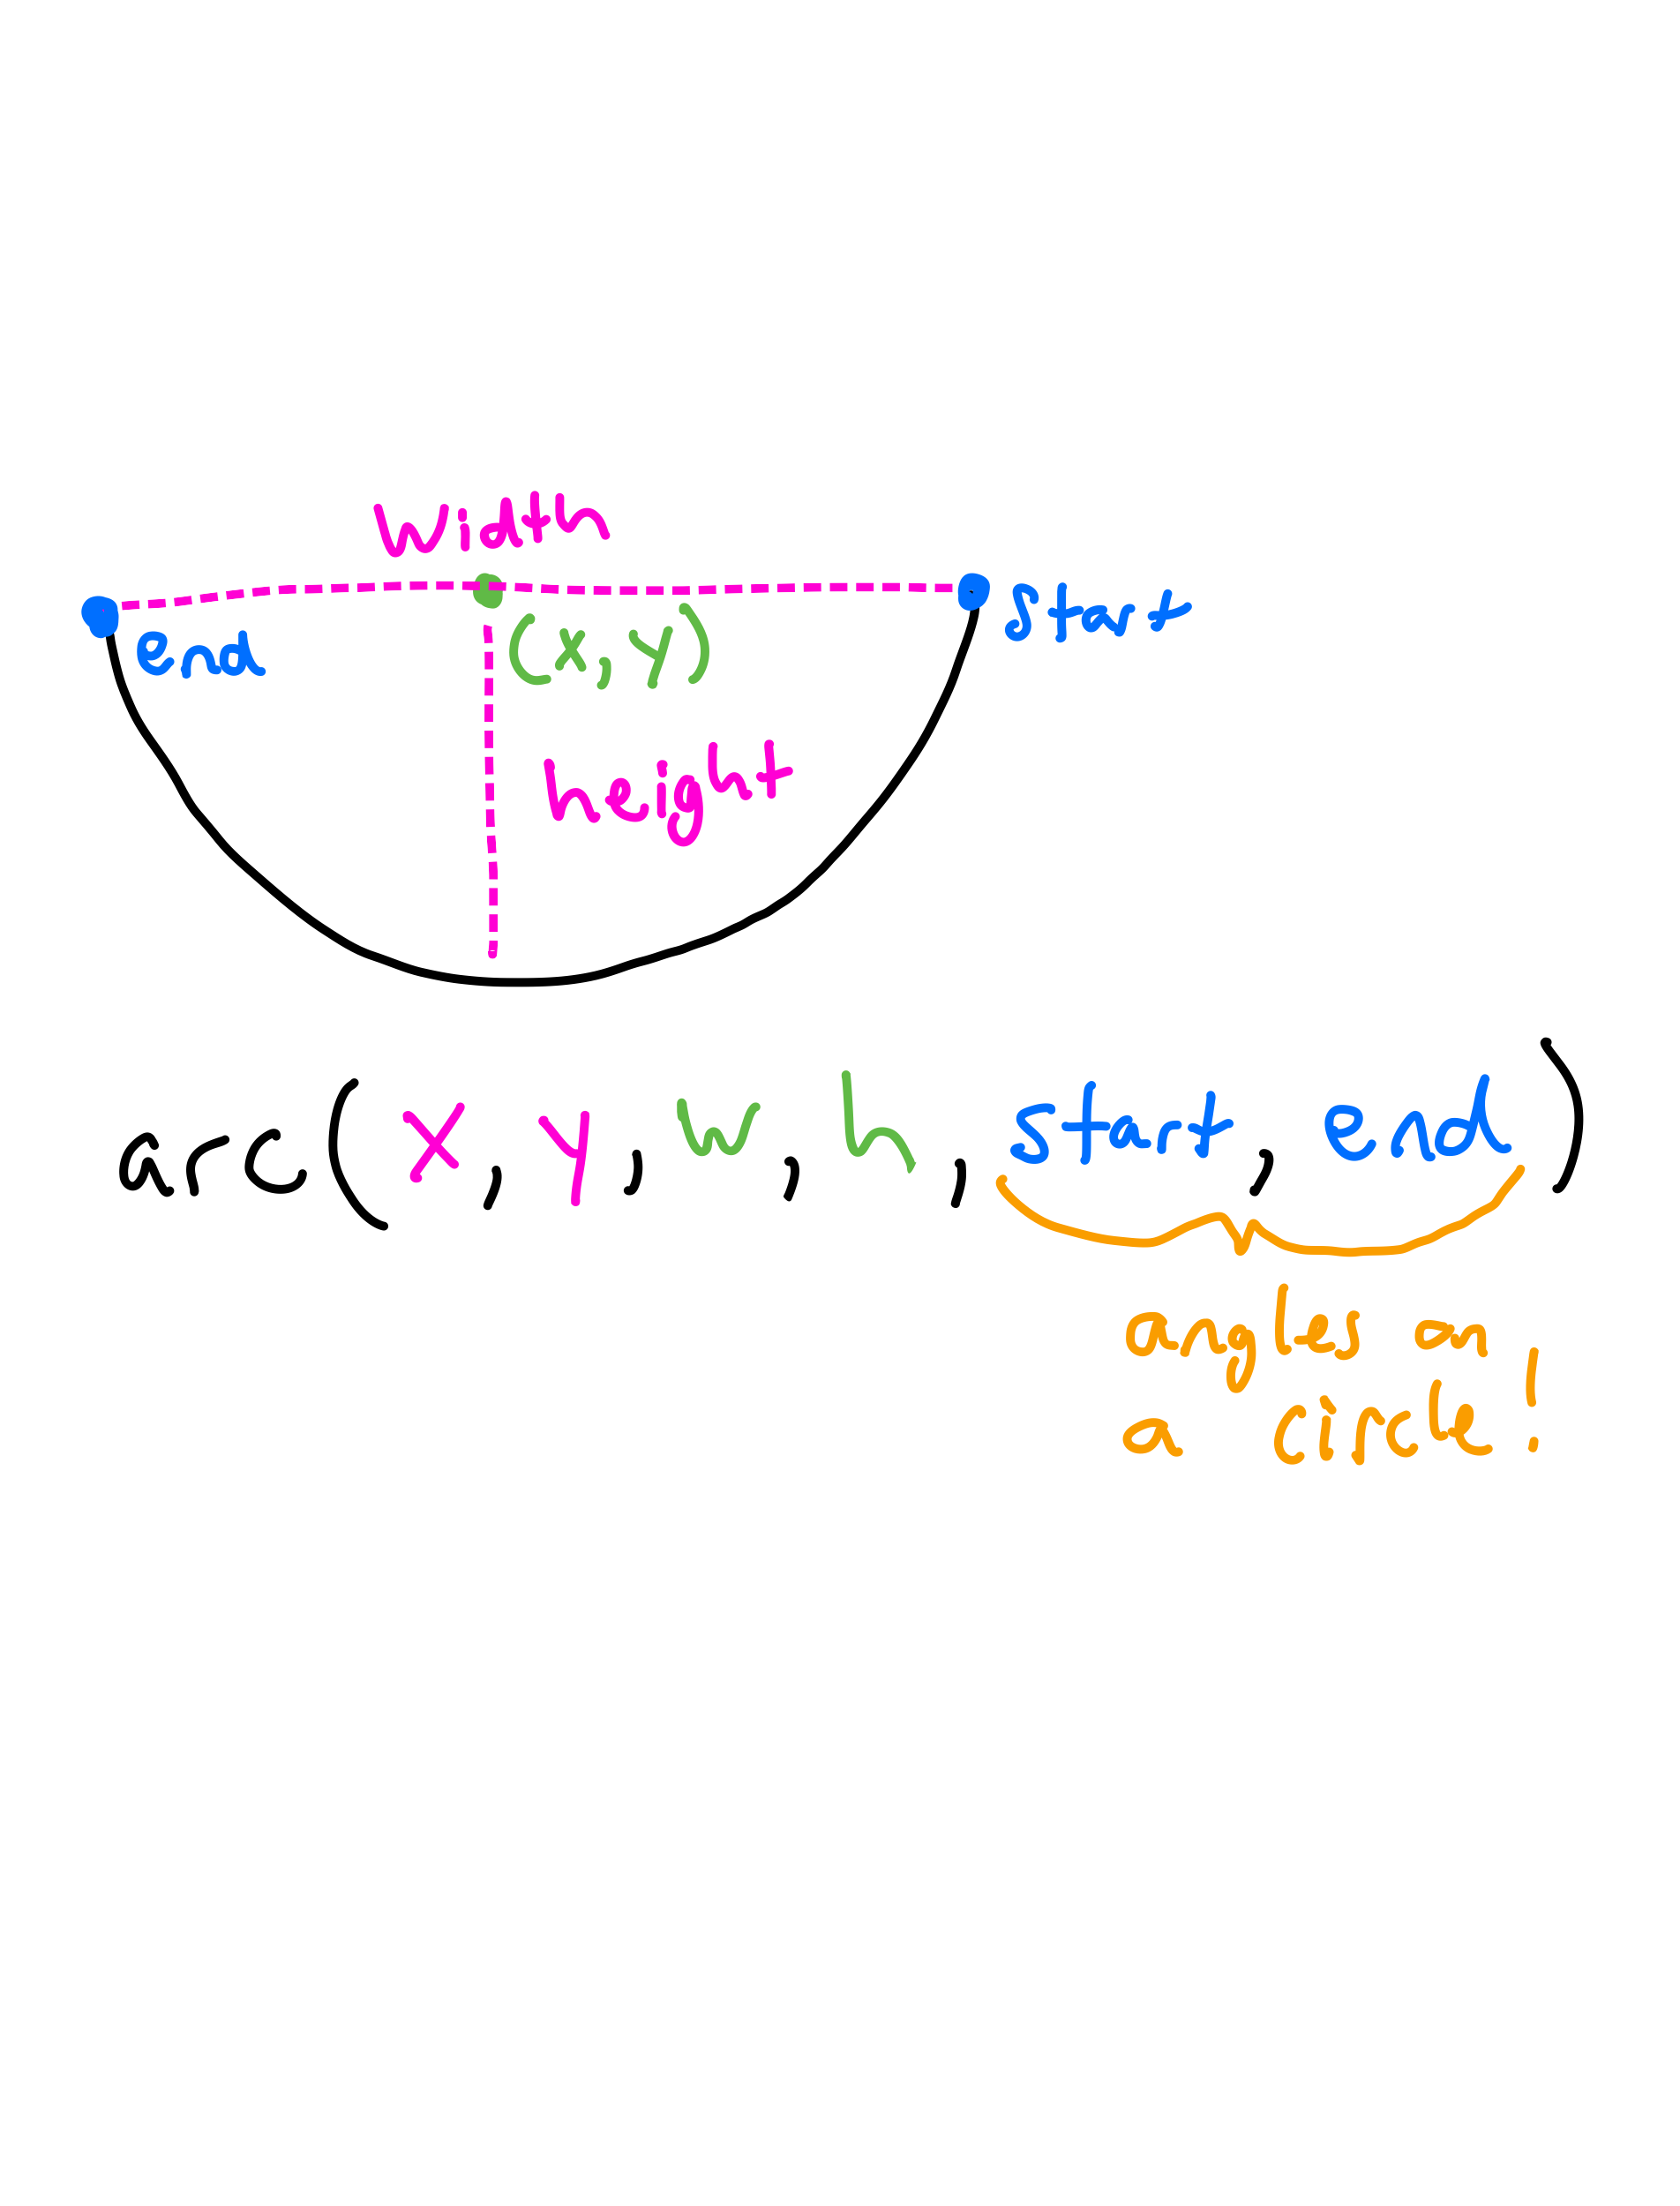 width
end
(x, y)
start
height
arc(x, y, w, h, start, end)
angles on
a circle!